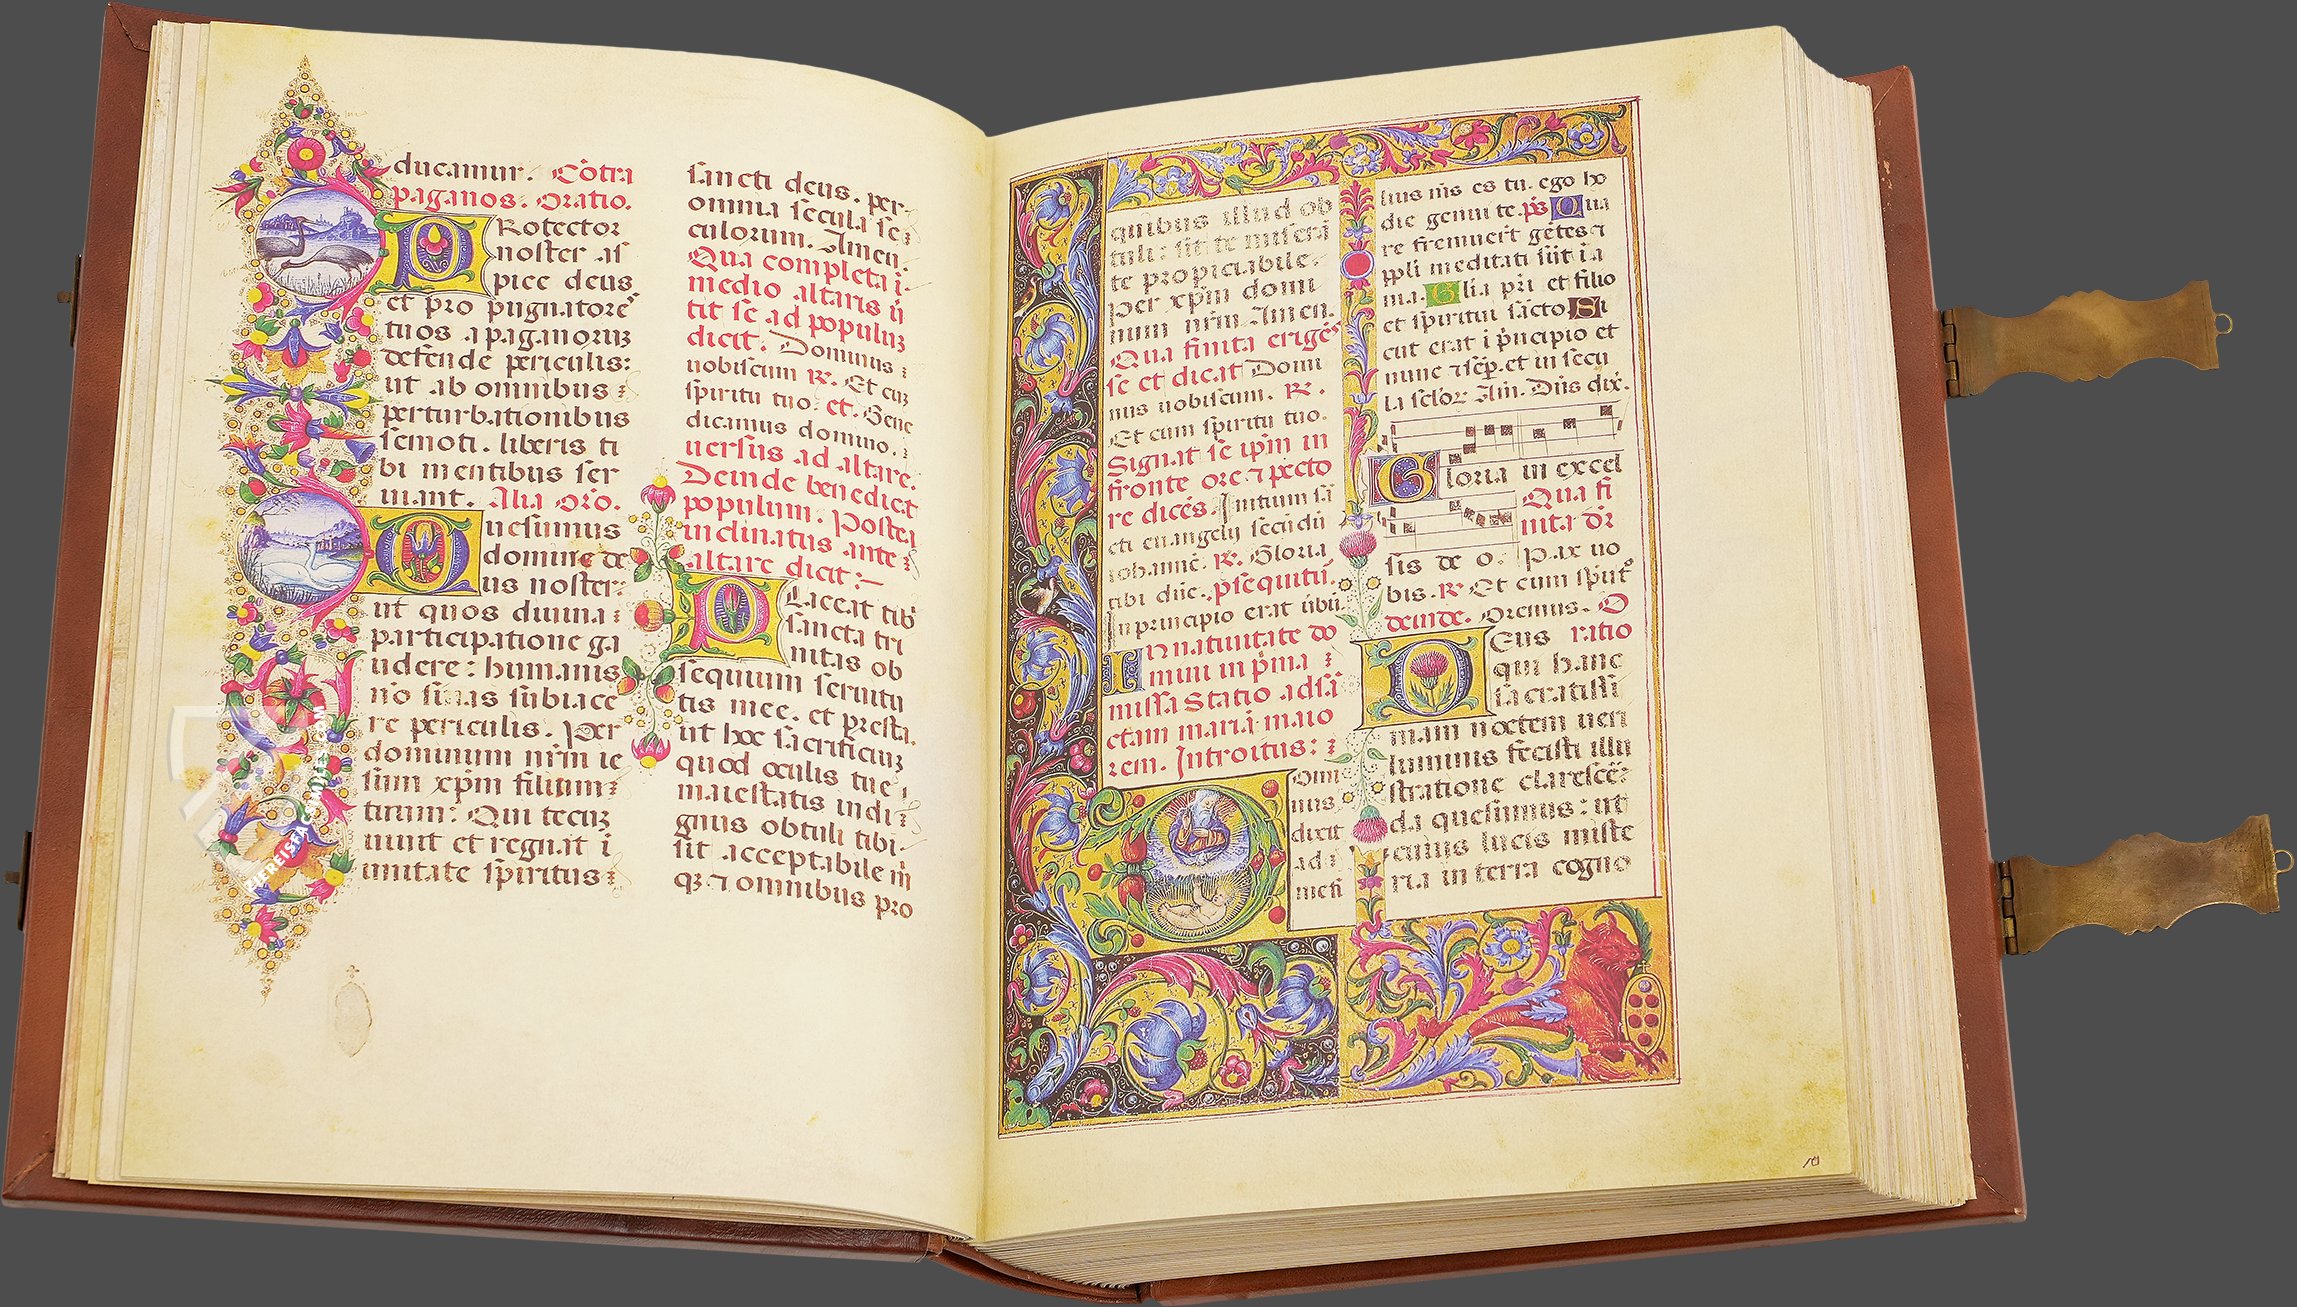 ducamur. Cōtra
paganos. Oratio.
PRotector
noster as
pice deus
et pro pugnatorē
tuos a paganoruȝ
defende periculis:
ut ab omnibus :
perturbationibus
semoti. liberis ti
bi mentibus ser
uiant. Alia orō.
Quesumus
domine de
us noster:
ut quos diuina :
participatione ga
udere: humanis
nō sinas subiace
re periculis. Per
dominum nr̄m ie
sum xp̄m filium :
tuum: Qui tecuȝ
uiuit et regnat i
unitate spiritus :
sancti deus. per
omnia secula se :
culorum. Amen.
Qua completa i
medio altaris ū
tit se ad populuȝ
dicit. Dominus :
uobiscum R. Et cuȝ
spiritu tuo. et. Bene
dicamus domino. :
uersus ad altare.
Deinde benedicat
populum. Postea
inclinatus ante :
altare dicit :—
PLaceat tibi
sancta tri
nitas ob
sequium seruitu
tis mee. et presta.
ut hoc sacrificiuȝ
quod oculis tue :
maiestatis indi :
gnus obtuli tibi.
sit acceptabile m̄
qȝ ⁊ omnibus pro
quibus illud ob
tuli: sit te miserā
te propiciabile.
Per xp̄m domi
num nr̄m Amen.
Qua finita erigēs
se et dicat Domi
nus uobiscum. R.
Et cum spiritu tuo.
Signat se ip̄m in
fronte ore ⁊ pecto
re dicēs. Initium sā
cti euangelij secūdū
iohannē. R. Gloria
tibi dn̄e. p̄sequitur.
In principio erat ūbū.
In natiuitate do
mini in p̄ma :
missa Statio ad sā
ctam mariā maio
rem. Introitus: :
Domi
nus
dixit
ad :
me fi
lius m̄s es tu. ego ho
die genui te. p̄s Qua
re fremuerūt gētes ⁊
pp̄li meditati sūt ia
nia. Glia pri et filio
et spiritui sācto. Si
cut erat i p̄ncipio et
nunc ⁊ sēp. et in secu
la sclōꝝ. Am. Dn̄s dix̄.
Gloria in excel
Qua fi
nita dr̄
sis de o. Pax uo
bis. R. Et cum sp̄ut°
deinde. Oremus. O
DEus ratio
qui hanc
sacratissi
mam noctem ueri
luminis fecisti illu
stratione clarescē:
da quesumus: ut
cuius lucis miste
ria in terra cogno
10
ZIEREIS FACSIMILES.COM